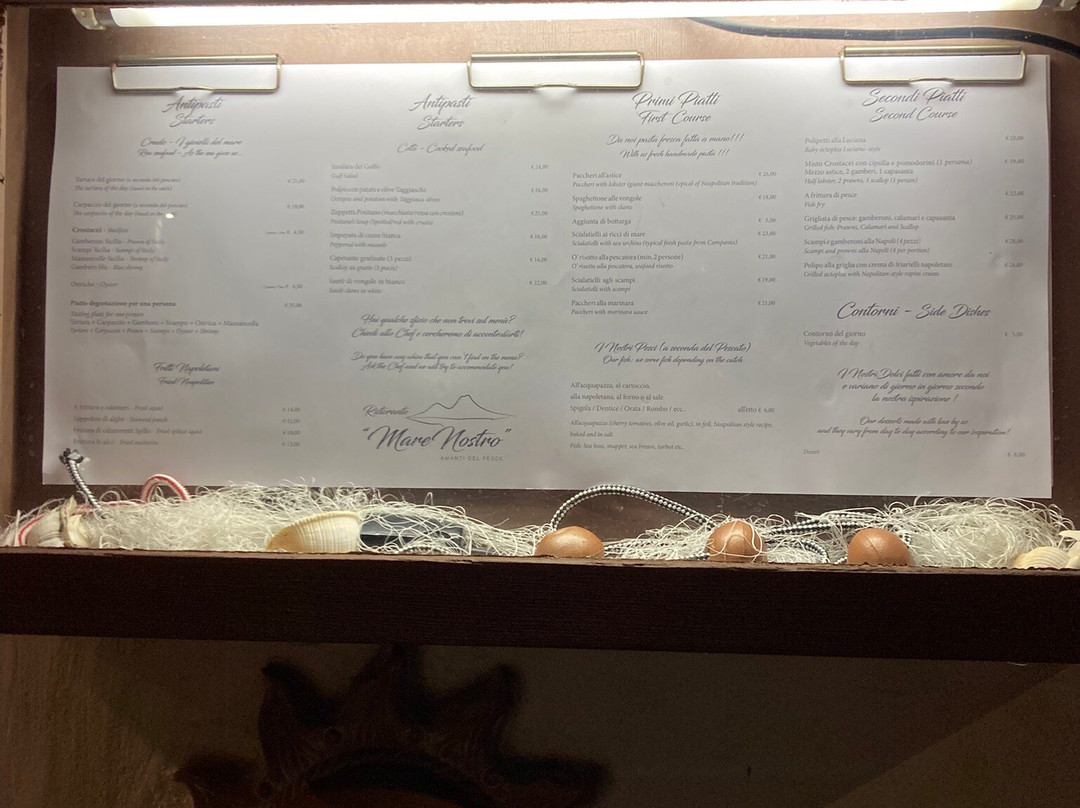 Antipasti
Starters
Crudo - I gioielli del mare
Raw seafood - As the sea gives us...
Tartare del giorno (a seconda del pescato) € 21,00
The tartare of the day (based on the catch)
Carpaccio del giorno (a seconda del pescato) € 19,00
The carpaccio of the day (based on the
Crostacei - Shellfish € 4,50
Gambero Sicilia - Prawns of Sicily
Scampi Sicilia - Scampi of Sicily
Mazzancolle Sicilia - Shrimp of Sicily
Gambero blu - Blue shrimp
Ostriche - Oyster
Piatto degustazione per una persona
Tasting plate for one person
Tartara + Carpaccio + Gambero + Scampo + Ostrica + Mazzancolla
Tartare + Carpaccio + Prawn + Scampo + Oyster + Shrimp
Fritti Napoletani
Fried Neapolitan
Fried squid
Seaweed
Fried anchovies
Antipasti
Starters
Cotti - Cooked seafood
Insalata del Golfo € 14,00
Gulf Salad
Polipo con patate e olive Taggiasche € 16,00
Octopus and potatoes with Taggiasca olives
Zuppetta Positano (macchiata/rossa con crostini) € 21,00
Positano's Soup (Spotted/red with crouton)
Impepata di cozze bianca € 16,00
Peppered with mussels
Capesante gratinate (3 pezzi) € 16,00
Scallop au gratin (3 pieces)
Sautè di vongole in bianco € 22,00
Sauté clams in white
Hai qualche sfizio che non trovi sul menù?
Chiedi allo Chef e cercheremo di accontentarti!
Do you have any whim that you can't find on the menu?
Ask the Chef and we will try to accommodate you!
Ristorante
"Mare Nostro"
AMANTI DEL PESCE
Primi Piatti
First Course
Da noi pasta fresca fatta a mano!!!
With us fresh handmade pasta !!!
Paccheri all'astice € 26,00
Paccheri with lobster (giant maccheroni typical of Neapolitan tradition)
Spaghettone alle vongole € 18,00
Spaghettone with clams
Aggiunta di bottarga € 5,00
Scialatielli ai ricci di mare € 23,00
Scialatielli with sea urchins (typical fresh pasta from Campania)
O' risotto alla pescatora (min. 2 persone) € 21,00
O' risotto alla pescatora, seafood risotto
Scialatielli agli scampi € 19,00
Scialatielli with scampi
Paccheri alla marinara € 21,00
Paccheri with marinara sauce
I Nostri Pesci (a seconda del Pescato)
Our fish: we serve fish depending on the catch
All'acquapazza, al cartoccio,
alla napoletana, al forno o al sale
Spigola / Dentice / Orata / Rombo / ecc.. all'etto € 6,00
All'acquapazza (cherry tomatoes, olive oil, garlic), in foil, Neapolitan style recipe,
baked and in salt
Fish: Sea bass, snapper, sea bream, turbot etc..
Secondi Piatti
Second Course
Polipetti alla Luciana
Baby octoplus Luciana style
Misto Crostacei con cipolla e pomodorini (1 persona)
Mezzo astice, 2 gamberi, 1 capasanta
Half lobster, 2 prawns, 1 scallop (1 person)
A frittura di pesce
Fish fry
Grigliata di pesce: gamberoni, calamari e capasanta
Grilled fish: Prawns, Calamari and Scallop
Scampi e gamberoni alla Napoli (4 pezzi)
Scampi and prawns alla Napoli (4 per portion)
Polipo alla griglia con crema di friarielli napoletani
Grilled octoplus with Neapolitan-style rapini cream
Contorni - Side Dishes
Contorno del giorno € 5,00
Vegetables of the day
I Nostri Dolci fatti con amore da noi
e variano di giorno in giorno secondo
la nostra ispirazione !
Our desserts made with love by us
and they vary from day to day according to our inspiration!
Dessert € 8,00